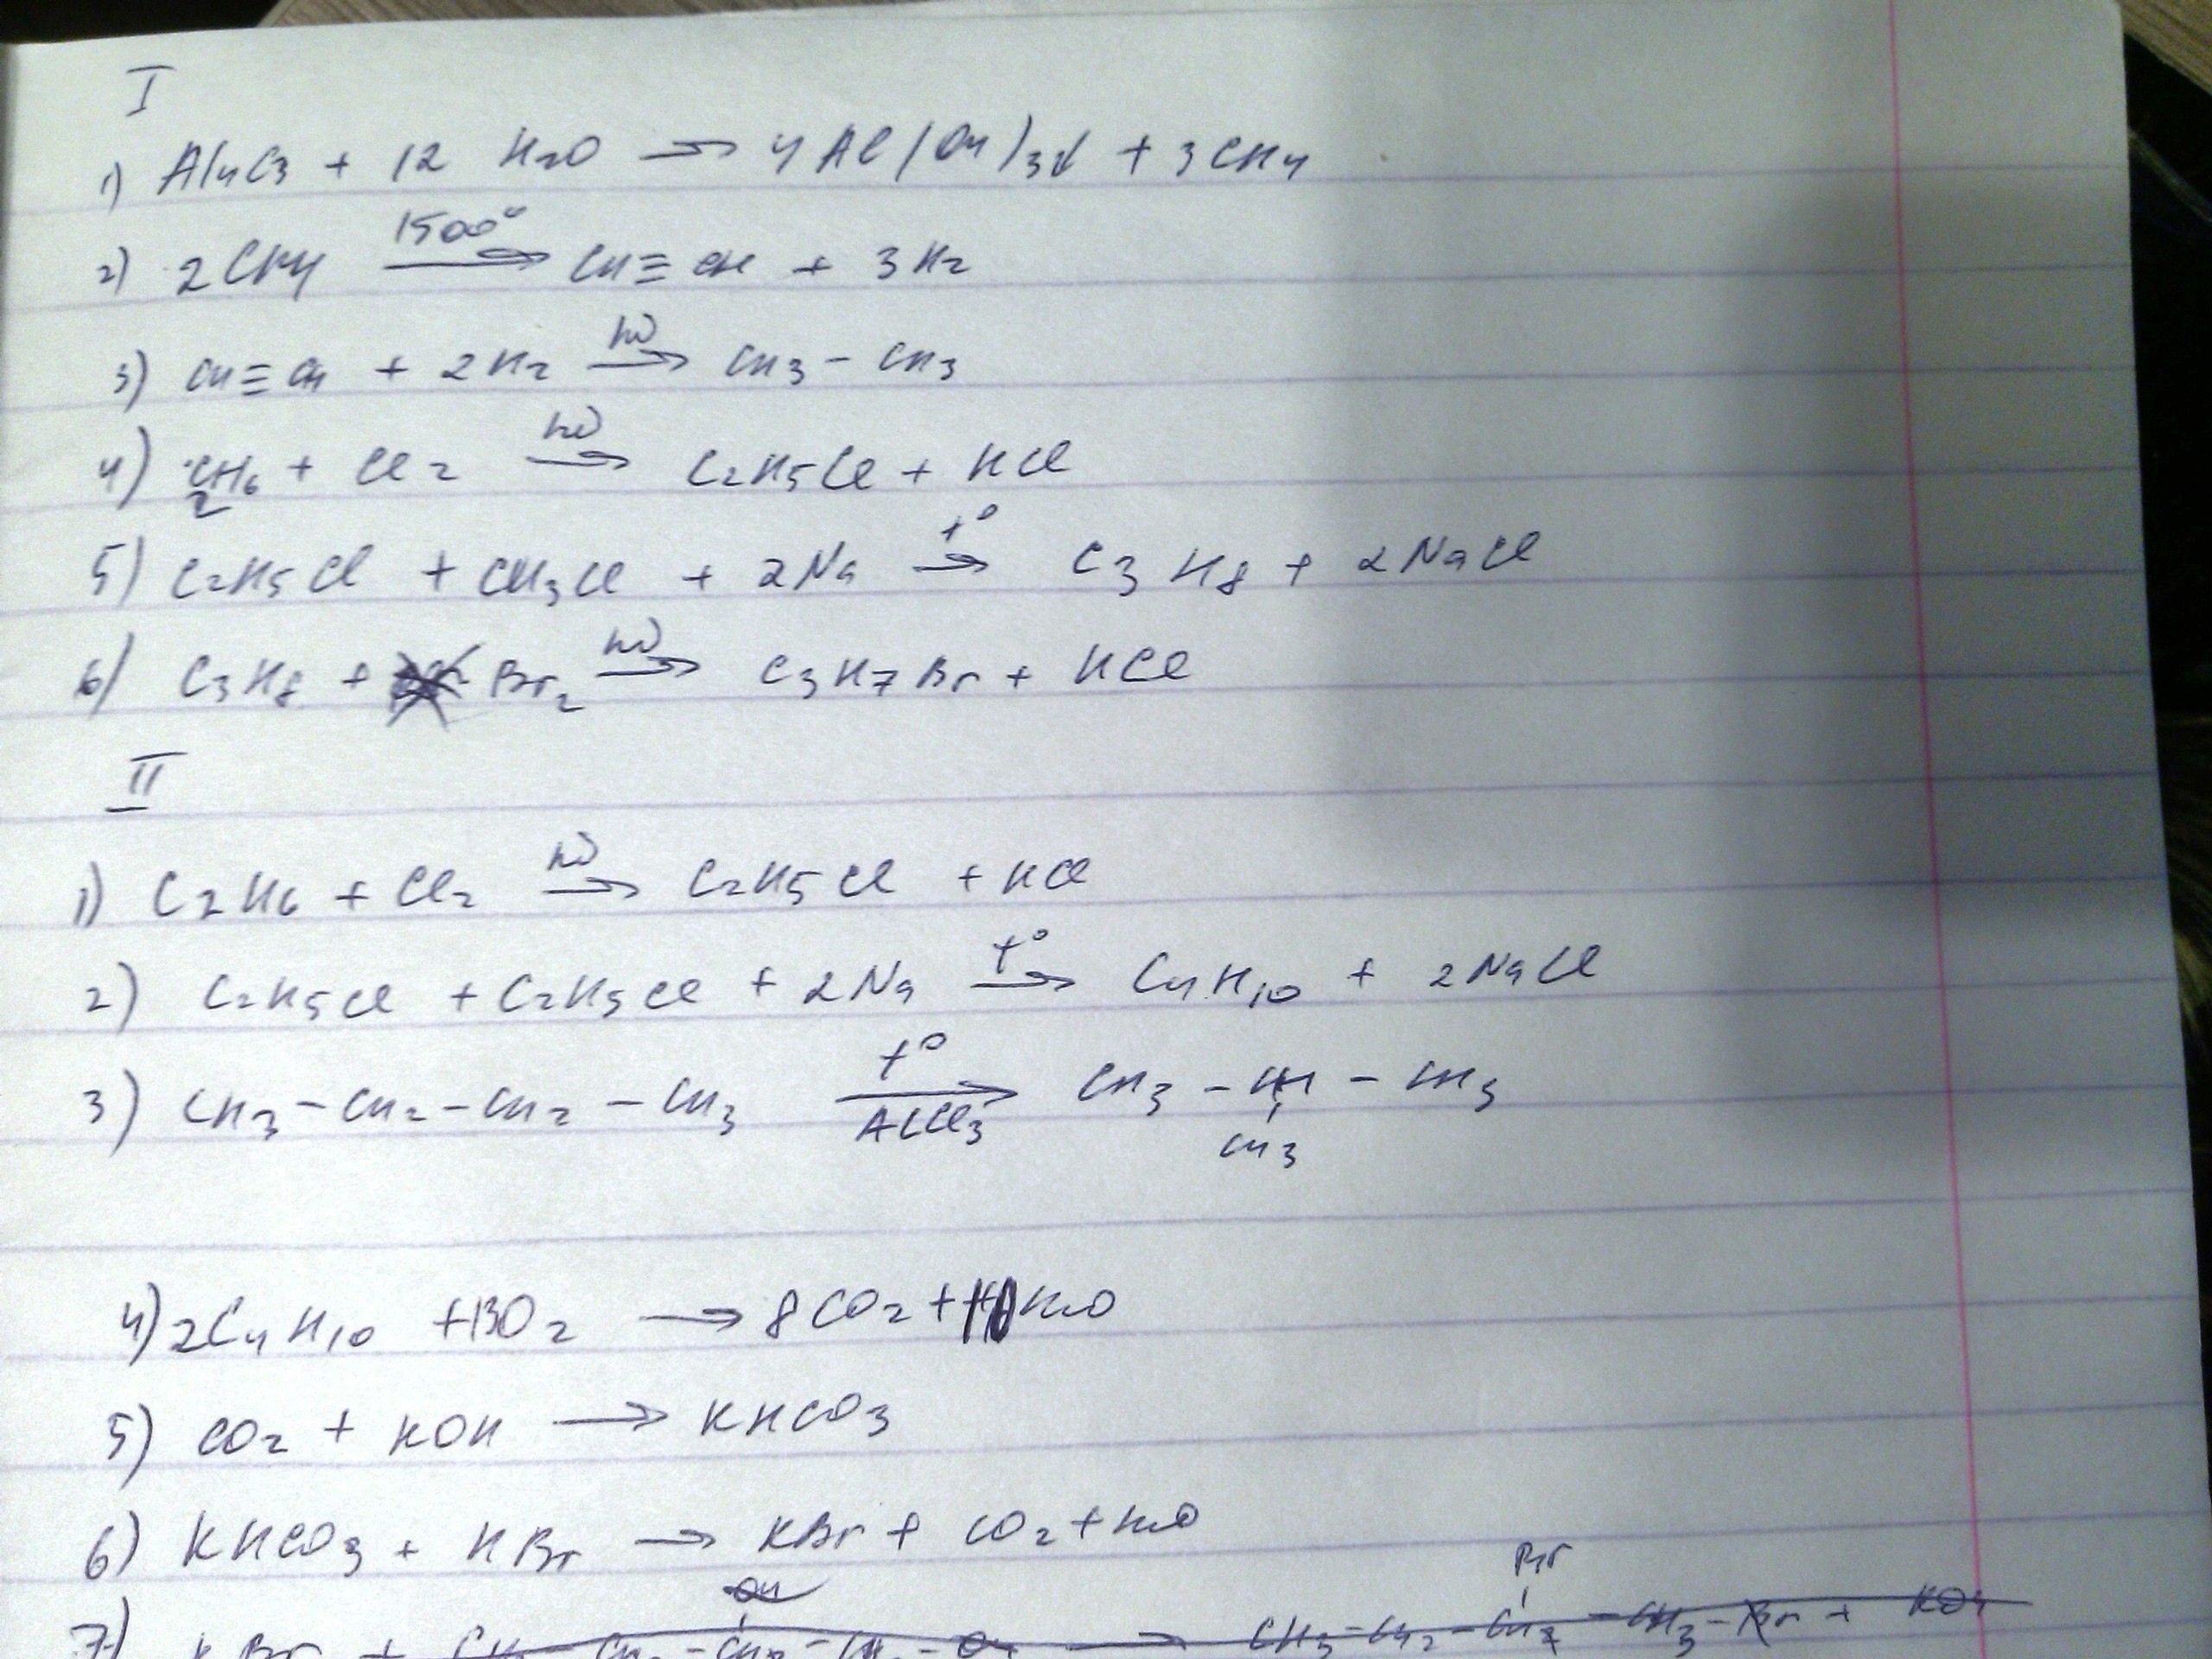 I
1) Al4C3 + 12 H2O → 4Al(OH)3↓ + 3CH4
2) 2CH4 1500° → CH≡CH + 3H2
3) CH≡CH + 2H2 hν → CH3 - CH3
4) C2H6 + Cl2 hν → C2H5Cl + HCl
5) C2H5Cl + CH3Cl + 2Na t° → C3H8 + 2NaCl
6) C3H8 + Br2 hν → C3H7Br + HCl
II
1) C2H6 + Cl2 hν → C2H5Cl + HCl
2) C2H5Cl + C2H5Cl + 2Na t° → C4H10 + 2NaCl
3) CH3 - CH2 - CH2 - CH3 t° → AlCl3 CH3 - CH - CH3
CH3
4) 2C4H10 + 13O2 → 8CO2 + 10H2O
5) CO2 + KOH → KHCO3
6) KHCO3 + HBr → KBr + CO2 + H2O
OH Br
7) KBr + → CH3 - CH2 - - CH3 - Br + KOH